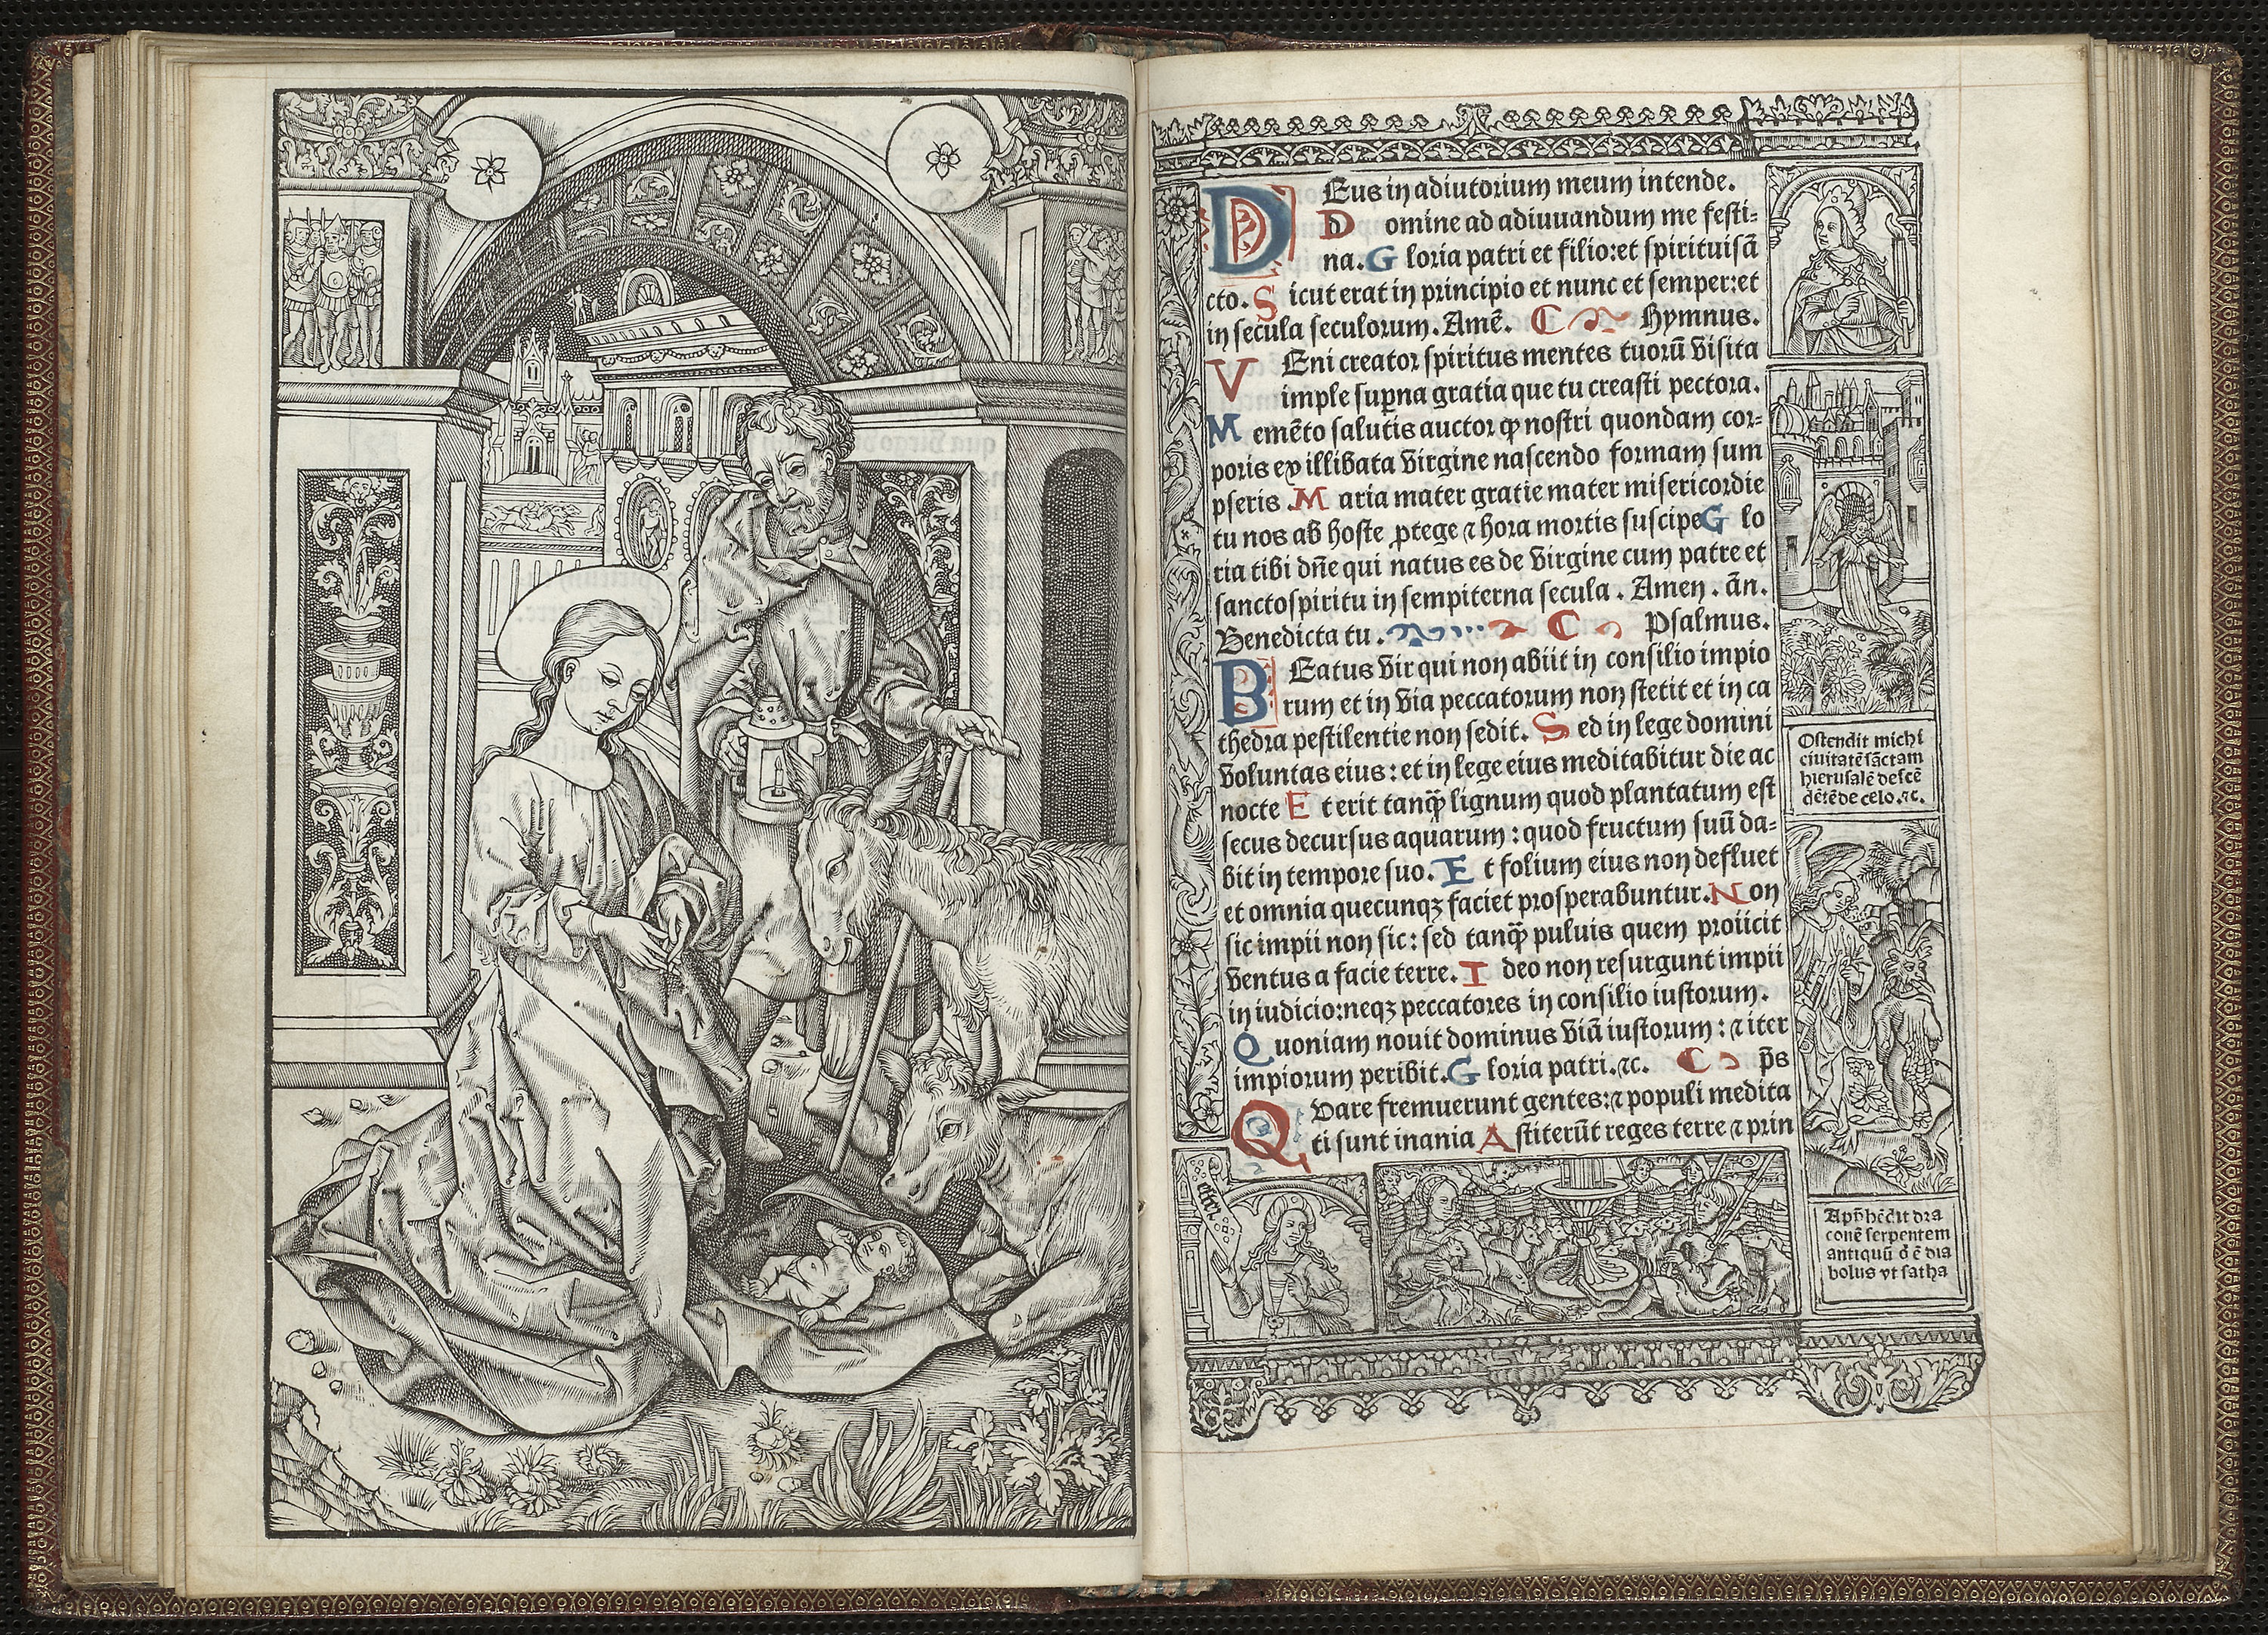 DEus in adiutorium meum intende.
Domine ad adiuuandum me festi=
na. Gloria patri et filio: et spirituisā
cto. Sicut erat in principio et nunc et semper: et
in secula seculorum. Amē. Hymnus.
VEni creator spiritus mentes tuorū visita
imple sup̄na gratia que tu creasti pectora.
Memēto salutis auctor qꝫ nostri quondam cor=
poris ex illibata virgine nascendo formam sum
pseris. Maria mater gratie mater misericordie
tu nos ab hoste ꝓtege ⁊ hora mortis suscipe Glo
ria tibi dn̄e qui natus es de virgine cum patre et
sanctospiritu in sempiterna secula. Amen. ān.
Benedicta tu. Psalmus.
BEatus vir qui non abiit in consilio impio
rum et in via peccatorum non stetit et in ca
thedra pestilentie non sedit. Sed in lege domini
voluntas eius: et in lege eius meditabitur die ac
nocte Et erit tanqꝫ̄ lignum quod plantatum est
secus decursus aquarum: quod fructum suū da=
bit in tempore suo. Et folium eius non defluet
et omnia quecunqꝫ faciet prosperabuntur. Non
sic impii non sic: sed tanqꝫ̄ puluis quem proiicit
ventus a facie terre. Ideo non resurgunt impii
in iudicio: neqꝫ peccatores in consilio iustorum.
Quoniam nouit dominus viā iustorum: ⁊ iter
impiorum peribit. Gloria patri. ⁊c. p̄s
QVare fremuerunt gentes: ⁊ populi medita
ti sunt inania Astiterūt reges terre ⁊ prin
Ostendit michi
ciuitatē sāctam
hierusalē descē
dētē de celo. ⁊c.
App̄hēdit dra
conē serpentem
antiquū q̄ ē dia
bolus vt satha